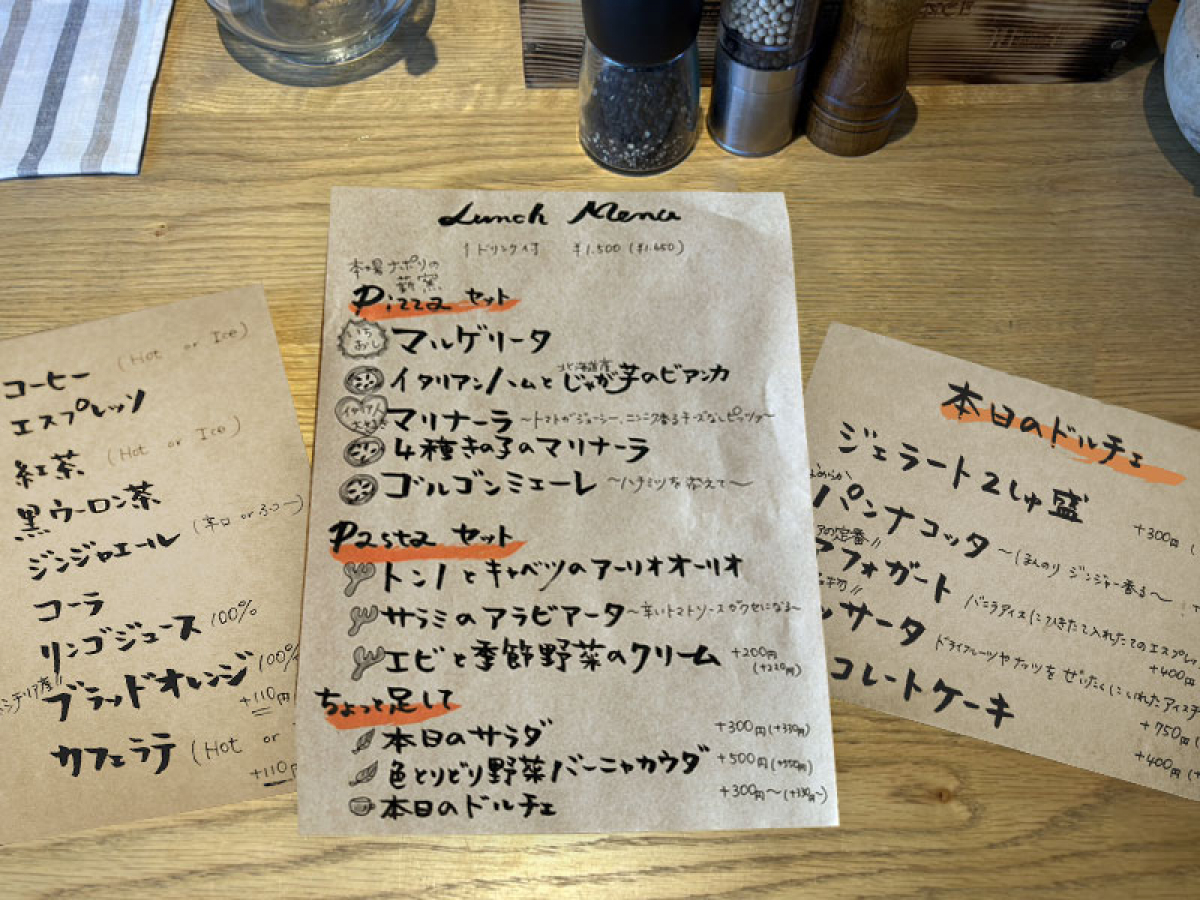 Lunch Menu
1ドリンク付 ¥1.500 (¥1.650)
本場ナポリの
薪窯
Pizza セット
いちおし マルゲリータ
イタリアンハムと北海道産じゃが芋のビアンカ
イタリア人 マリナーラ ～トマトがジューシー、ニンニク香るチーズなしピッツァ～
4種きの子のマリナーラ
ゴルゴンミエーレ ～ハチミツを添えて～
Pasta セット
トンノとキャベツのアーリオオーリオ
サラミのアラビアータ ～辛いトマトソースがクセになる～
エビと季節野菜のクリーム +200円
(+220円)
ちょっと足して
本日のサラダ +300円(+330円)
色とりどり野菜バーニャカウダ +500円(+550円)
本日のドルチェ +300円～(+330円～)
コーヒー (Hot or Ice)
エスプレッソ
紅茶 (Hot or Ice)
黒ウーロン茶
ジンジャエール (辛口 or
コーラ
リンゴジュース 100%
ブラッドオレンジ 100%
+110円
カフェラテ (Hot or
+110円
本日のドルチェ
ジェラート2しゅ盛
+300円 (
パンナコッタ ～ほんのり ジンジャー香る～
の定番!!
アフォガート バニラアイスにひきたて入れたてのエスプレッ
+400円
名物!!
ッサータ ドライフルーツやナッツをぜいたくにいれたアイスケ
+750円
コレートケーキ
+400円 (+